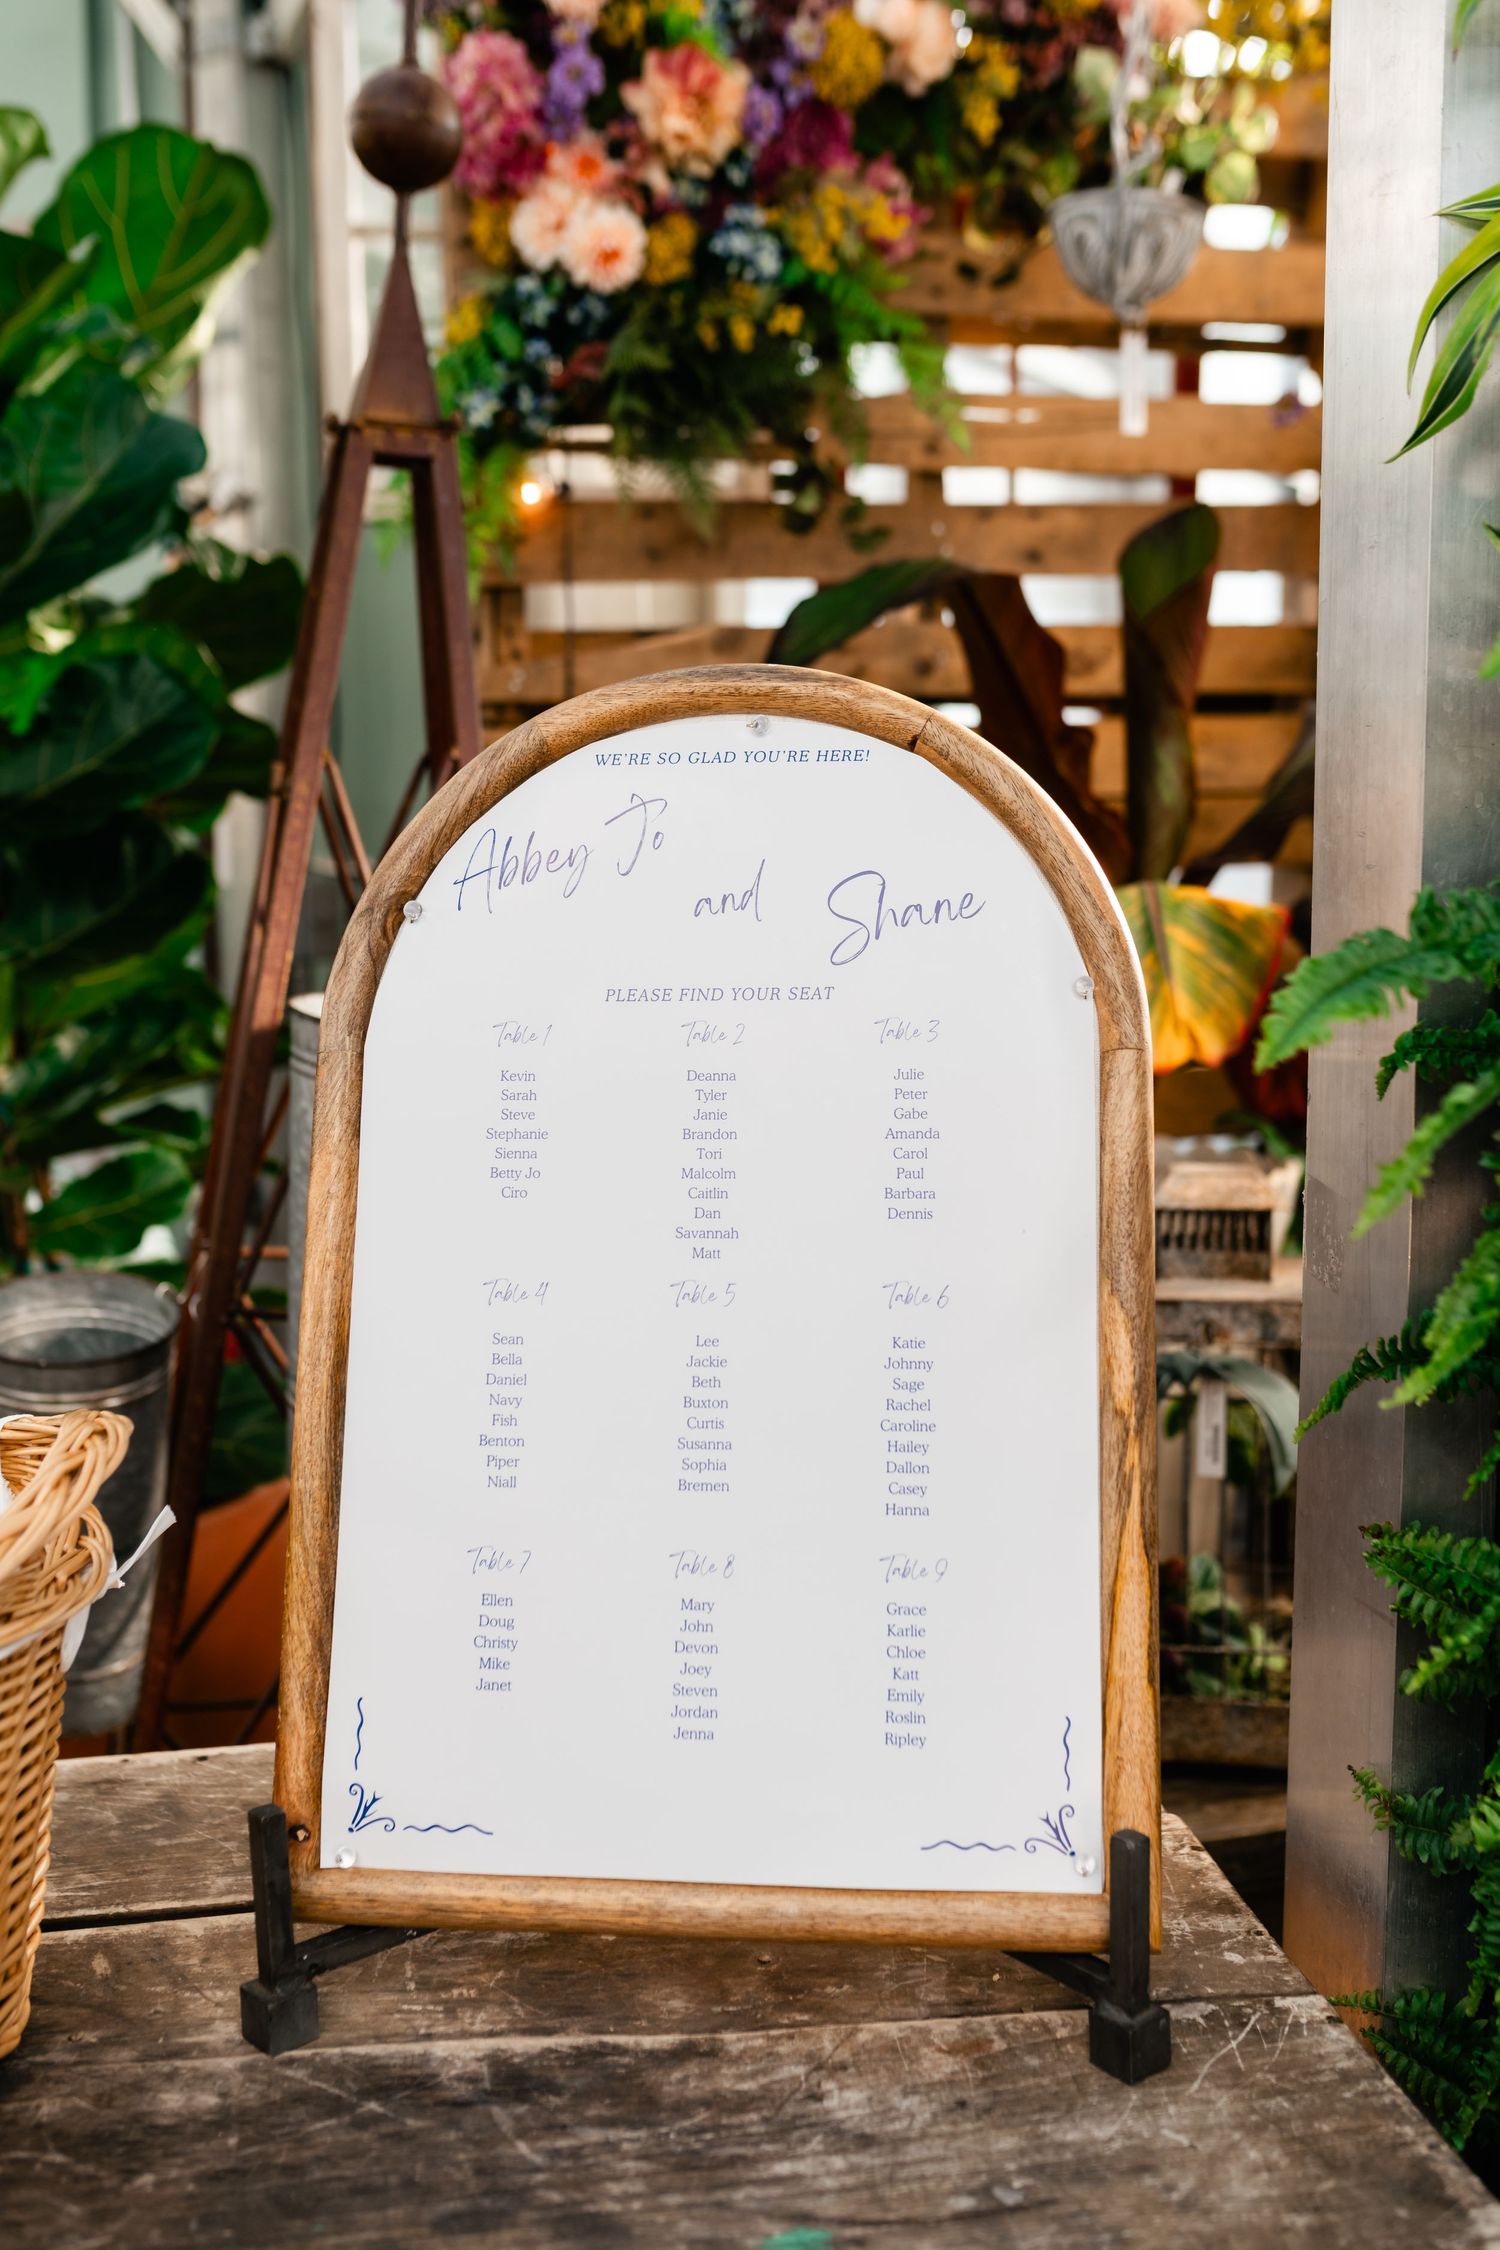 WE'RE SO GLAD YOU'RE HERE!
Abbey Jo
and
Shane
PLEASE FIND YOUR SEAT
Table 1
Kevin
Sarah
Steve
Stephanie
Sienna
Betty Jo
Ciro
Table 2
Deanna
Tyler
Janie
Brandon
Tori
Malcolm
Caitlin
Dan
Savannah
Matt
Table 3
Julie
Peter
Gabe
Amanda
Carol
Paul
Barbara
Dennis
Table 4
Sean
Bella
Daniel
Navy
Fish
Benton
Piper
Niall
Table 5
Lee
Jackie
Beth
Buxton
Curtis
Susanna
Sophia
Bremen
Table 6
Katie
Johnny
Sage
Rachel
Caroline
Hailey
Dallon
Casey
Hanna
Table 7
Ellen
Doug
Christy
Mike
Janet
Table 8
Mary
John
Devon
Joey
Steven
Jordan
Jenna
Table 9
Grace
Karlie
Chloe
Katt
Emily
Roslin
Ripley